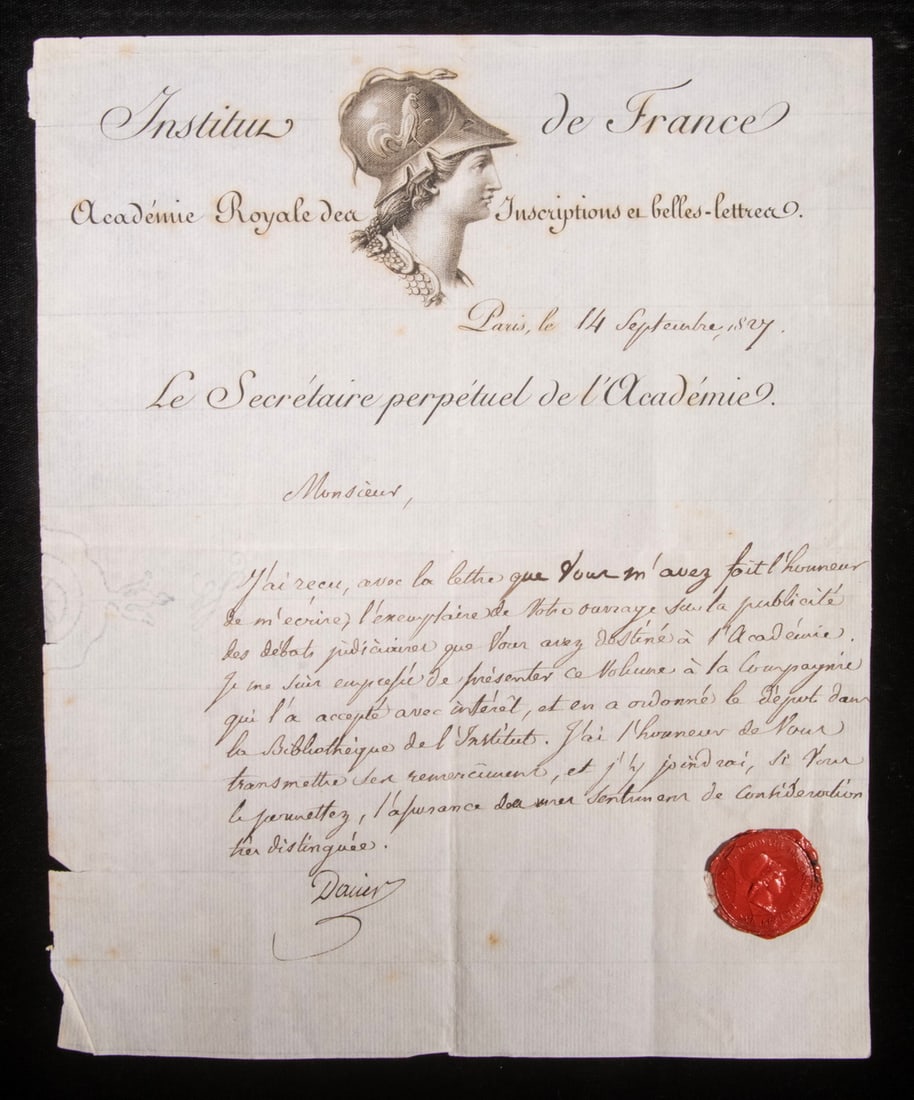 Institut de France
Académie Royale des Inscriptions et belles-lettres.
Paris, le 14 Septembre, 1827.
Le Secrétaire perpétuel de l'Académie.
Monsieur,
J'ai reçu, avec la lettre que Vous m'avez fait l'honneur
de m'écrire, l'exemplaire de Votre ouvrage sur la publicité
des débats judiciaires que Vous avez destiné à l'Académie.
Je me suis empressé de présenter ce Volume à la Compagnie
qui l'a accepté avec intérêt, et en a ordonné le dépot dans
la Bibliothèque de l'Institut. J'ai l'honneur de Vous
transmettre ses remerciemens, et j'y joindrai, si Vous
le permettez, l'assurance des mes sentimens de considération
très distinguée.
Dacier